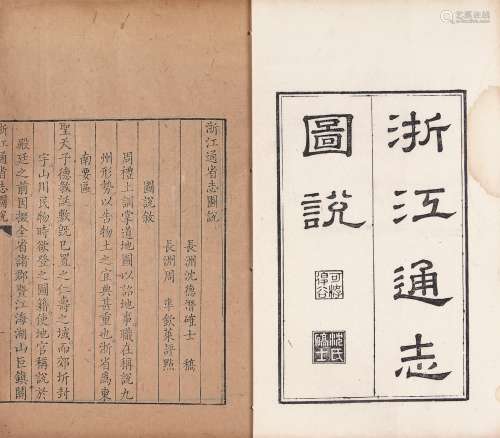 浙江通志
圖説
沈氏
浙江通省志圖說
長洲沈德潛確士 稿
長洲周 準欽萊評點
圖說敘
周禮土訓掌道地圖以詔地事職在稱說九
州形勢以告物土之宜典甚重也浙省爲東
南要區
聖天子德教誕敷旣已置之仁壽之域而郊圻封
守山川民物時欲登之圖籍使地官稱說於
殿廷之前因撮全省諸郡暨江海湖山巨鎮關
浙江通省志圖說